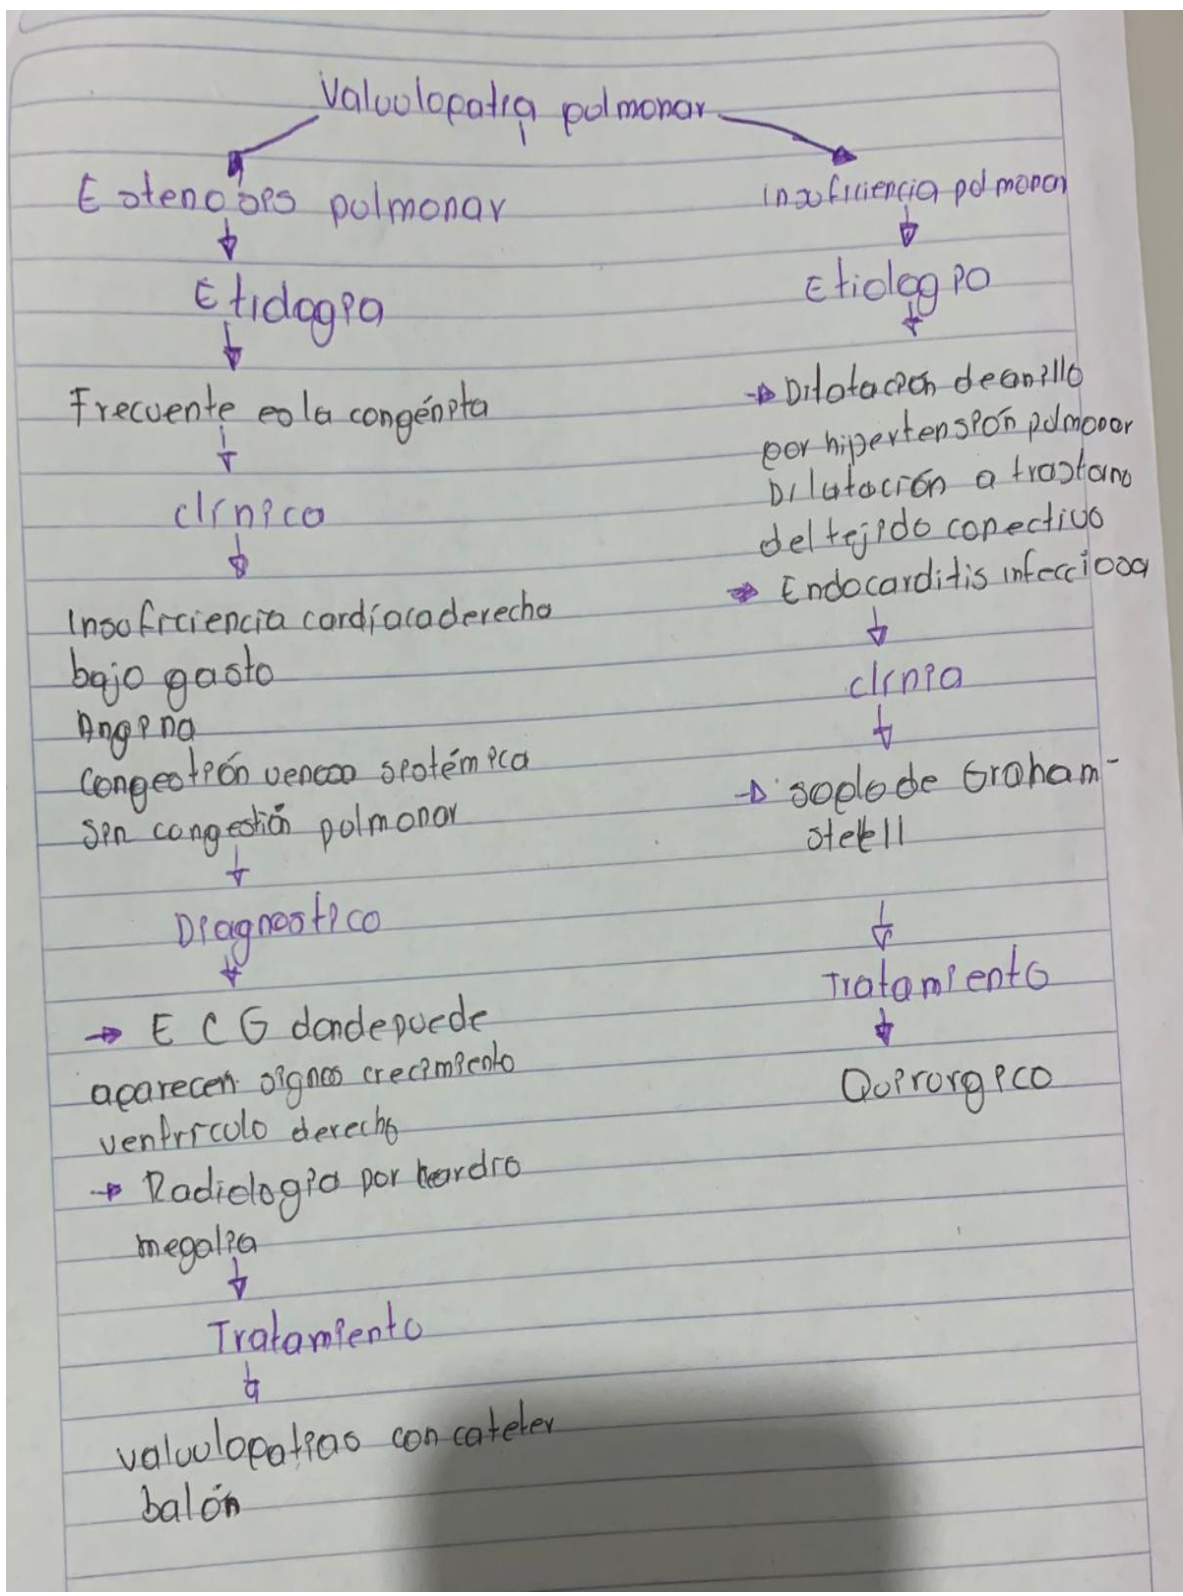 Valvulopatía pulmonar
Estenosis pulmonar
Etiología
Frecuente es la congénita
clínica
Insuficiencia cardíaca derecha
bajo gasto
Angina
congestión venosa sistémica
sin congestión pulmonar
Diagnostico
ECG donde puede
aparecen signos crecimiento
ventrículo derecho
Radiologia por
megalia
Tratamiento
valvulopatias con cateter
balón
Insuficiencia pulmonar
Etiologia
Dilatación de anillo
por hipertensión pulmonar
Dilatación a trastorno
del tejido conectivo
Endocarditis infecciosa
clínia
soplo de Graham-
steell
Tratamiento
Quirurgico